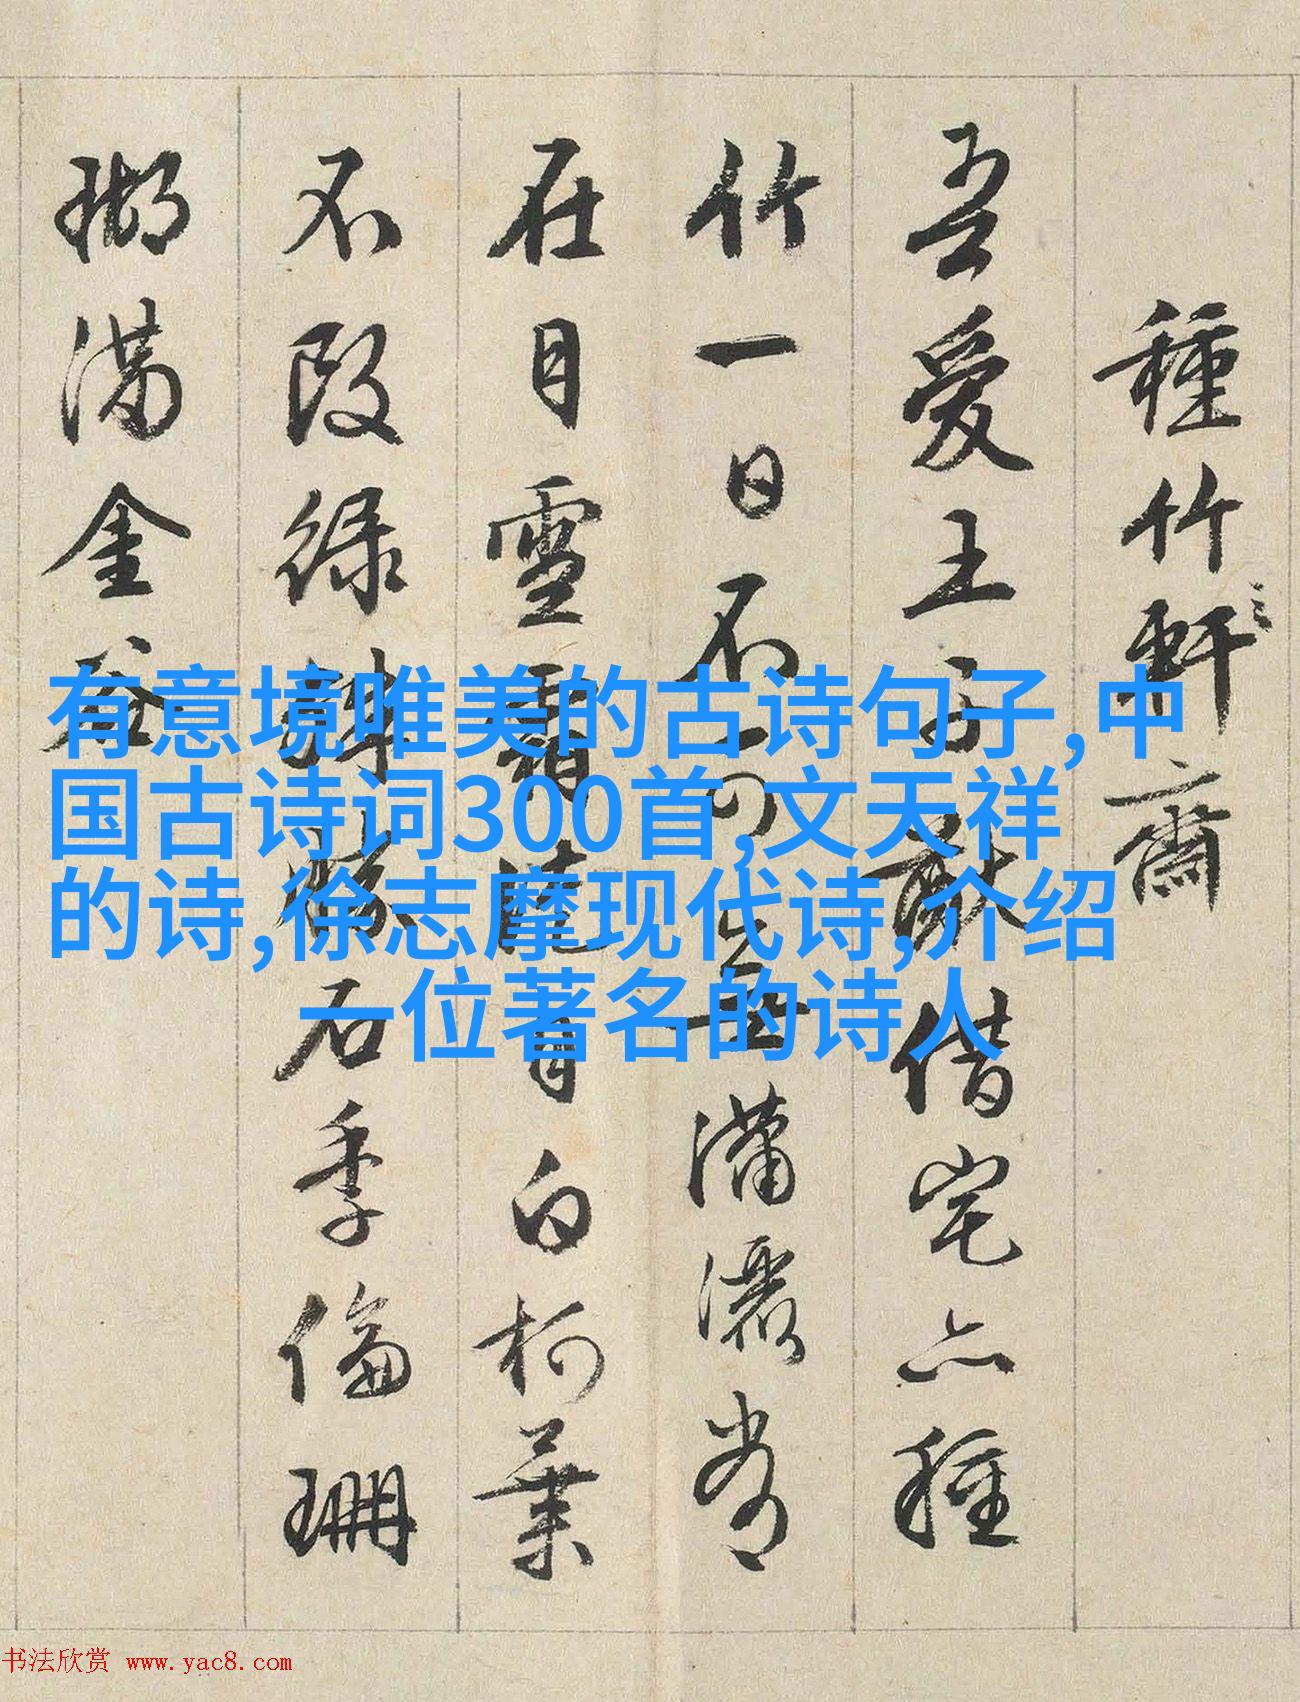 種竹軒齋
吾愛王子猷借宅亦種
竹一日不可無瀟灑常
在目雪霜自白柯葉
不改綠殊勝石季倫珊
瑚滿金谷
有意境唯美的古诗句子,中
国古诗词300首,文天祥
的诗,徐志摩现代诗,介绍
一位著名的诗人
书法欣赏 www.yac8.com